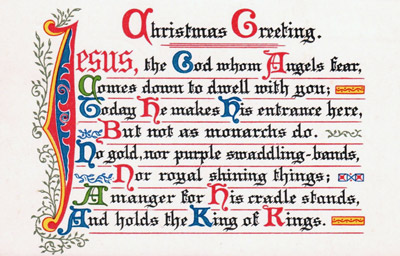 Christmas Greeting.
Jesus, the God whom Angels fear,
Comes down to dwell with you;
Today He makes His entrance here,
But not as monarchs do.
No gold, nor purple swaddling-bands,
Nor royal shining things;
A manger for His cradle stands,
And holds the King of Kings.